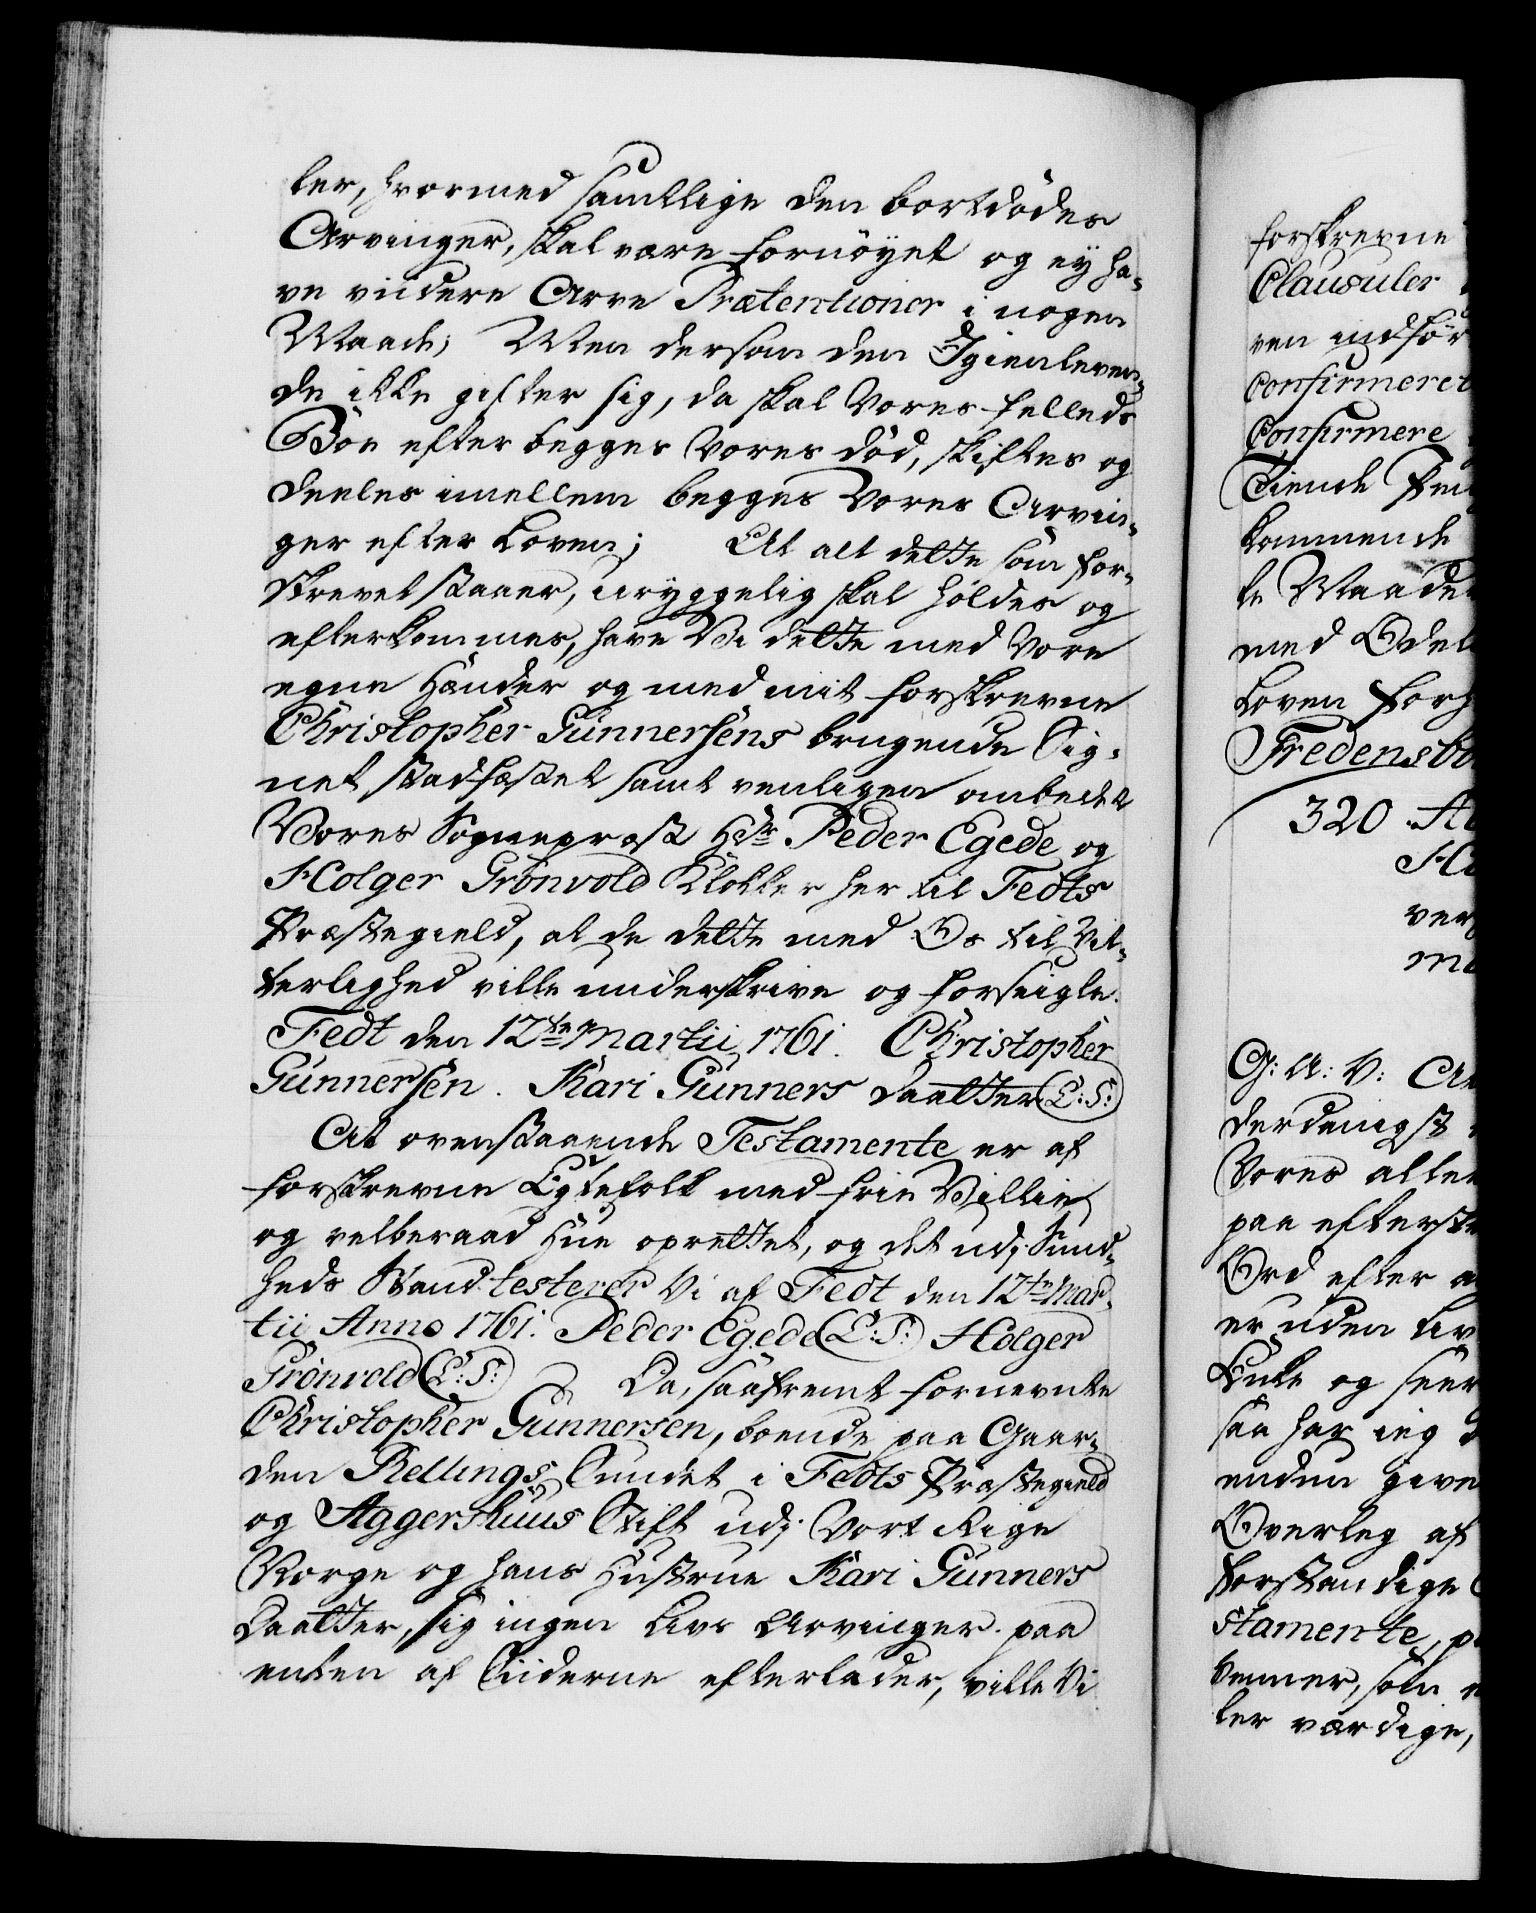 ler, hvormed samtlige den bortdødes
Arvinger, skal være fornøyet og ey ha-
ve viidere Arve Prætentioner i nogen
Maade; Men dersom den Igienleven-
de ikke gifter sig, da skal Vores felleds
Boe efter begges Vores død, skiftes og
deeles imellem begges Vores Arvin-
ger efter Loven; At alt dette som for-
skrevet staaer, uryggelig skal holdes og
efterkommes, have Vi dette med Vore
egne Hænder og med mit forskrevne
Christopher Gunnersens brugende Sig-
net stadfæstet samt venligen ombedet
Vores Sognepræst Hr: Peder Egede og
Holger Grönvold Klokker her til Fedts
Præstegield, at de dette med Os til Vit-
terlighed ville underskrive og forseigle.
Fedt den 12te Martii 1761. Christopher
Gunnersen. Kari Gunners Daatter (L:S:)
At ovenstaaende Testamente er af
forskrevne Egtefolk med frie Villie
og velberaad Hue oprettet, og det udj Sund-
heds Stand testerer Vi af Fedt den 12te Mar-
tii Anno 1761. Peder Egede (L:S:) Holger
Grönvold (L:S:) Da, saafremt fornevnte
Christopher Gunnersen, boende paa Gaar-
den Rellings Sundet i Fedts Præstegield
og Aggershuus Stift udj Vort Rige
Norge og hans Hustrue Kari Gunners
Daatter, sig ingen Livs Arvinger paa
enten af Siiderne efterlader, ville Vi
forskrevne
Clausuler
ven indfør
confirmere
Confirmere
Tiende Pen
kommende
le Maade
med Odel
Loven forh
Fredensbo
320 A
H
ver
m
G: A: V: A
derdanigst
Vores aller
paa efterst
Ord efter a
er uden Liv
Enke og seer
saa har ieg
enden give
Overleg af
forstandige
stamente, p
Venner, som
ler værdige,